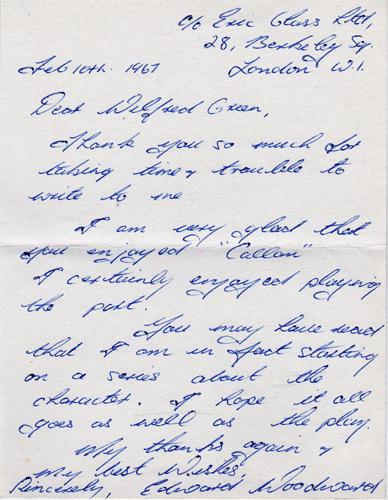 c/o Eric Glass Ltd,
28, Berkeley Sq.
Feb 16th. 1967 London W.1.
Dear Wilfred Green,
Thank you so much for
taking time & trouble to
write to me
I am very glad that
you enjoyed "Callan"
I certainly enjoyed playing
the part.
You may have read
that I am in fact starting
on a series about the
character. I hope it all
goes as well as the play.
My thanks again &
my best wishes,
Sincerely, Edward Woodward